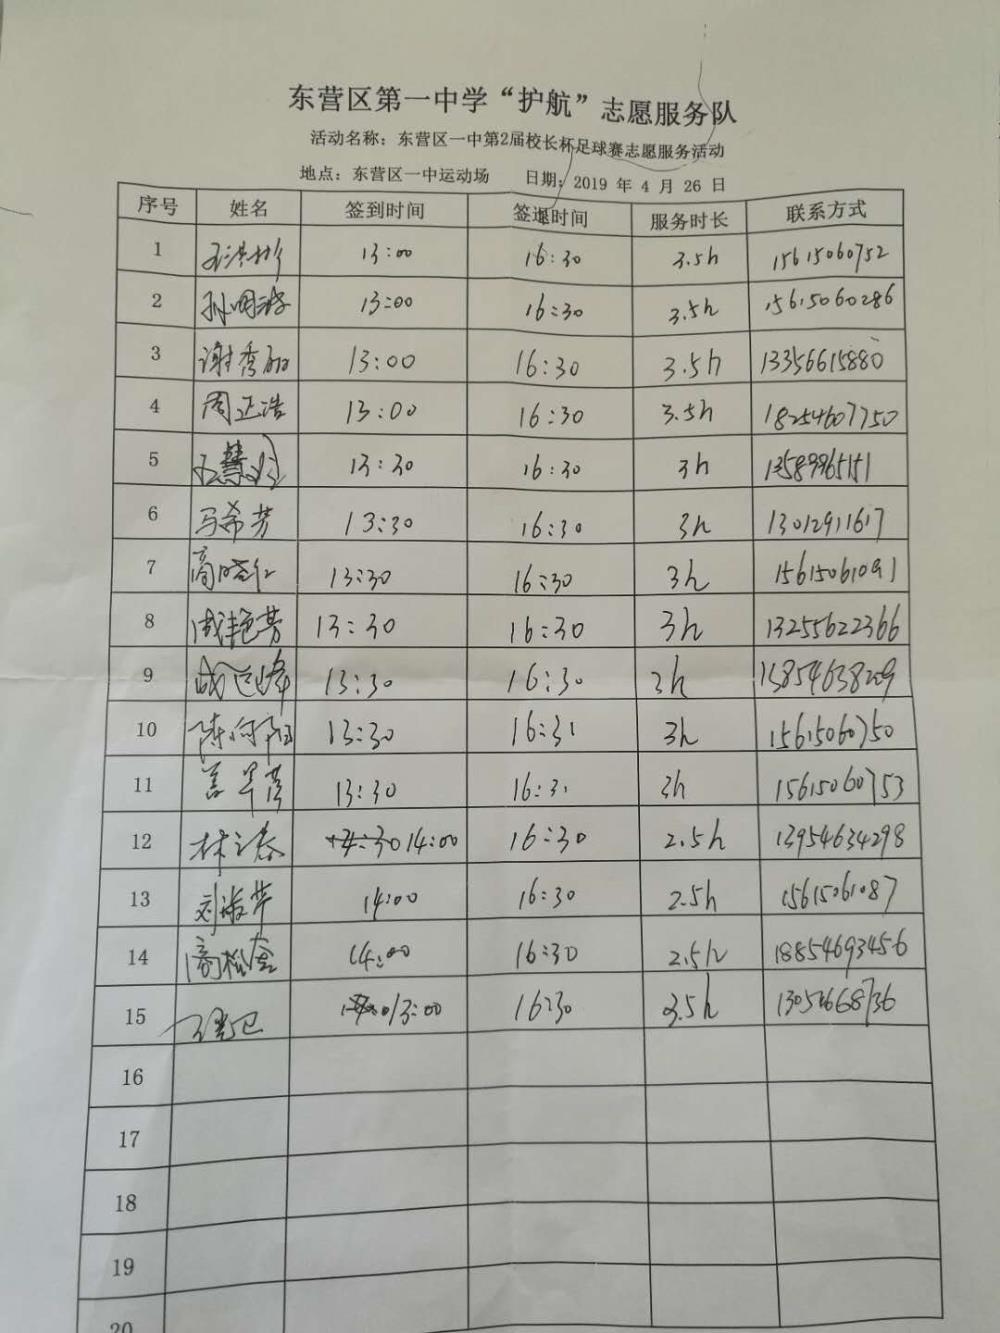 东营区第一中学“护航”志愿服务队
活动名称：东营区一中第2届校长杯足球赛志愿服务活动
地点：东营区一中运动场 日期：2019 年 4 月 26 日
序号 姓名 签到时间 签退时间 服务时长 联系方式
1 13:00 16:30 3.5h 15615060752
2 孙明 13:00 16:30 3.5h 15615060286
3 谢秀丽 13:00 16:30 3.5h 13356615880
4 周正浩 13:00 16:30 3.5h 18254607750
5 慧 13:30 16:30 3h 13589965151
6 马希芳 13:30 16:30 3h 13012911617
7 13:30 16:30 3h 15615061091
8 成艳芳 13:30 16:30 3h 13255622366
9 13:30 16:30 3h
10 陈向阳 13:30 16:31 3h 15615060750
11 13:30 16:31 3h 15615060753
12 林之春 14:00 16:30 2.5h 13954634298
13 刘淑华 14:00 16:30 2.5h 15615061087
14 14:00 16:30 2.5h 18854693456
15 13:00 16:30 3.5h
16
17
18
19
20